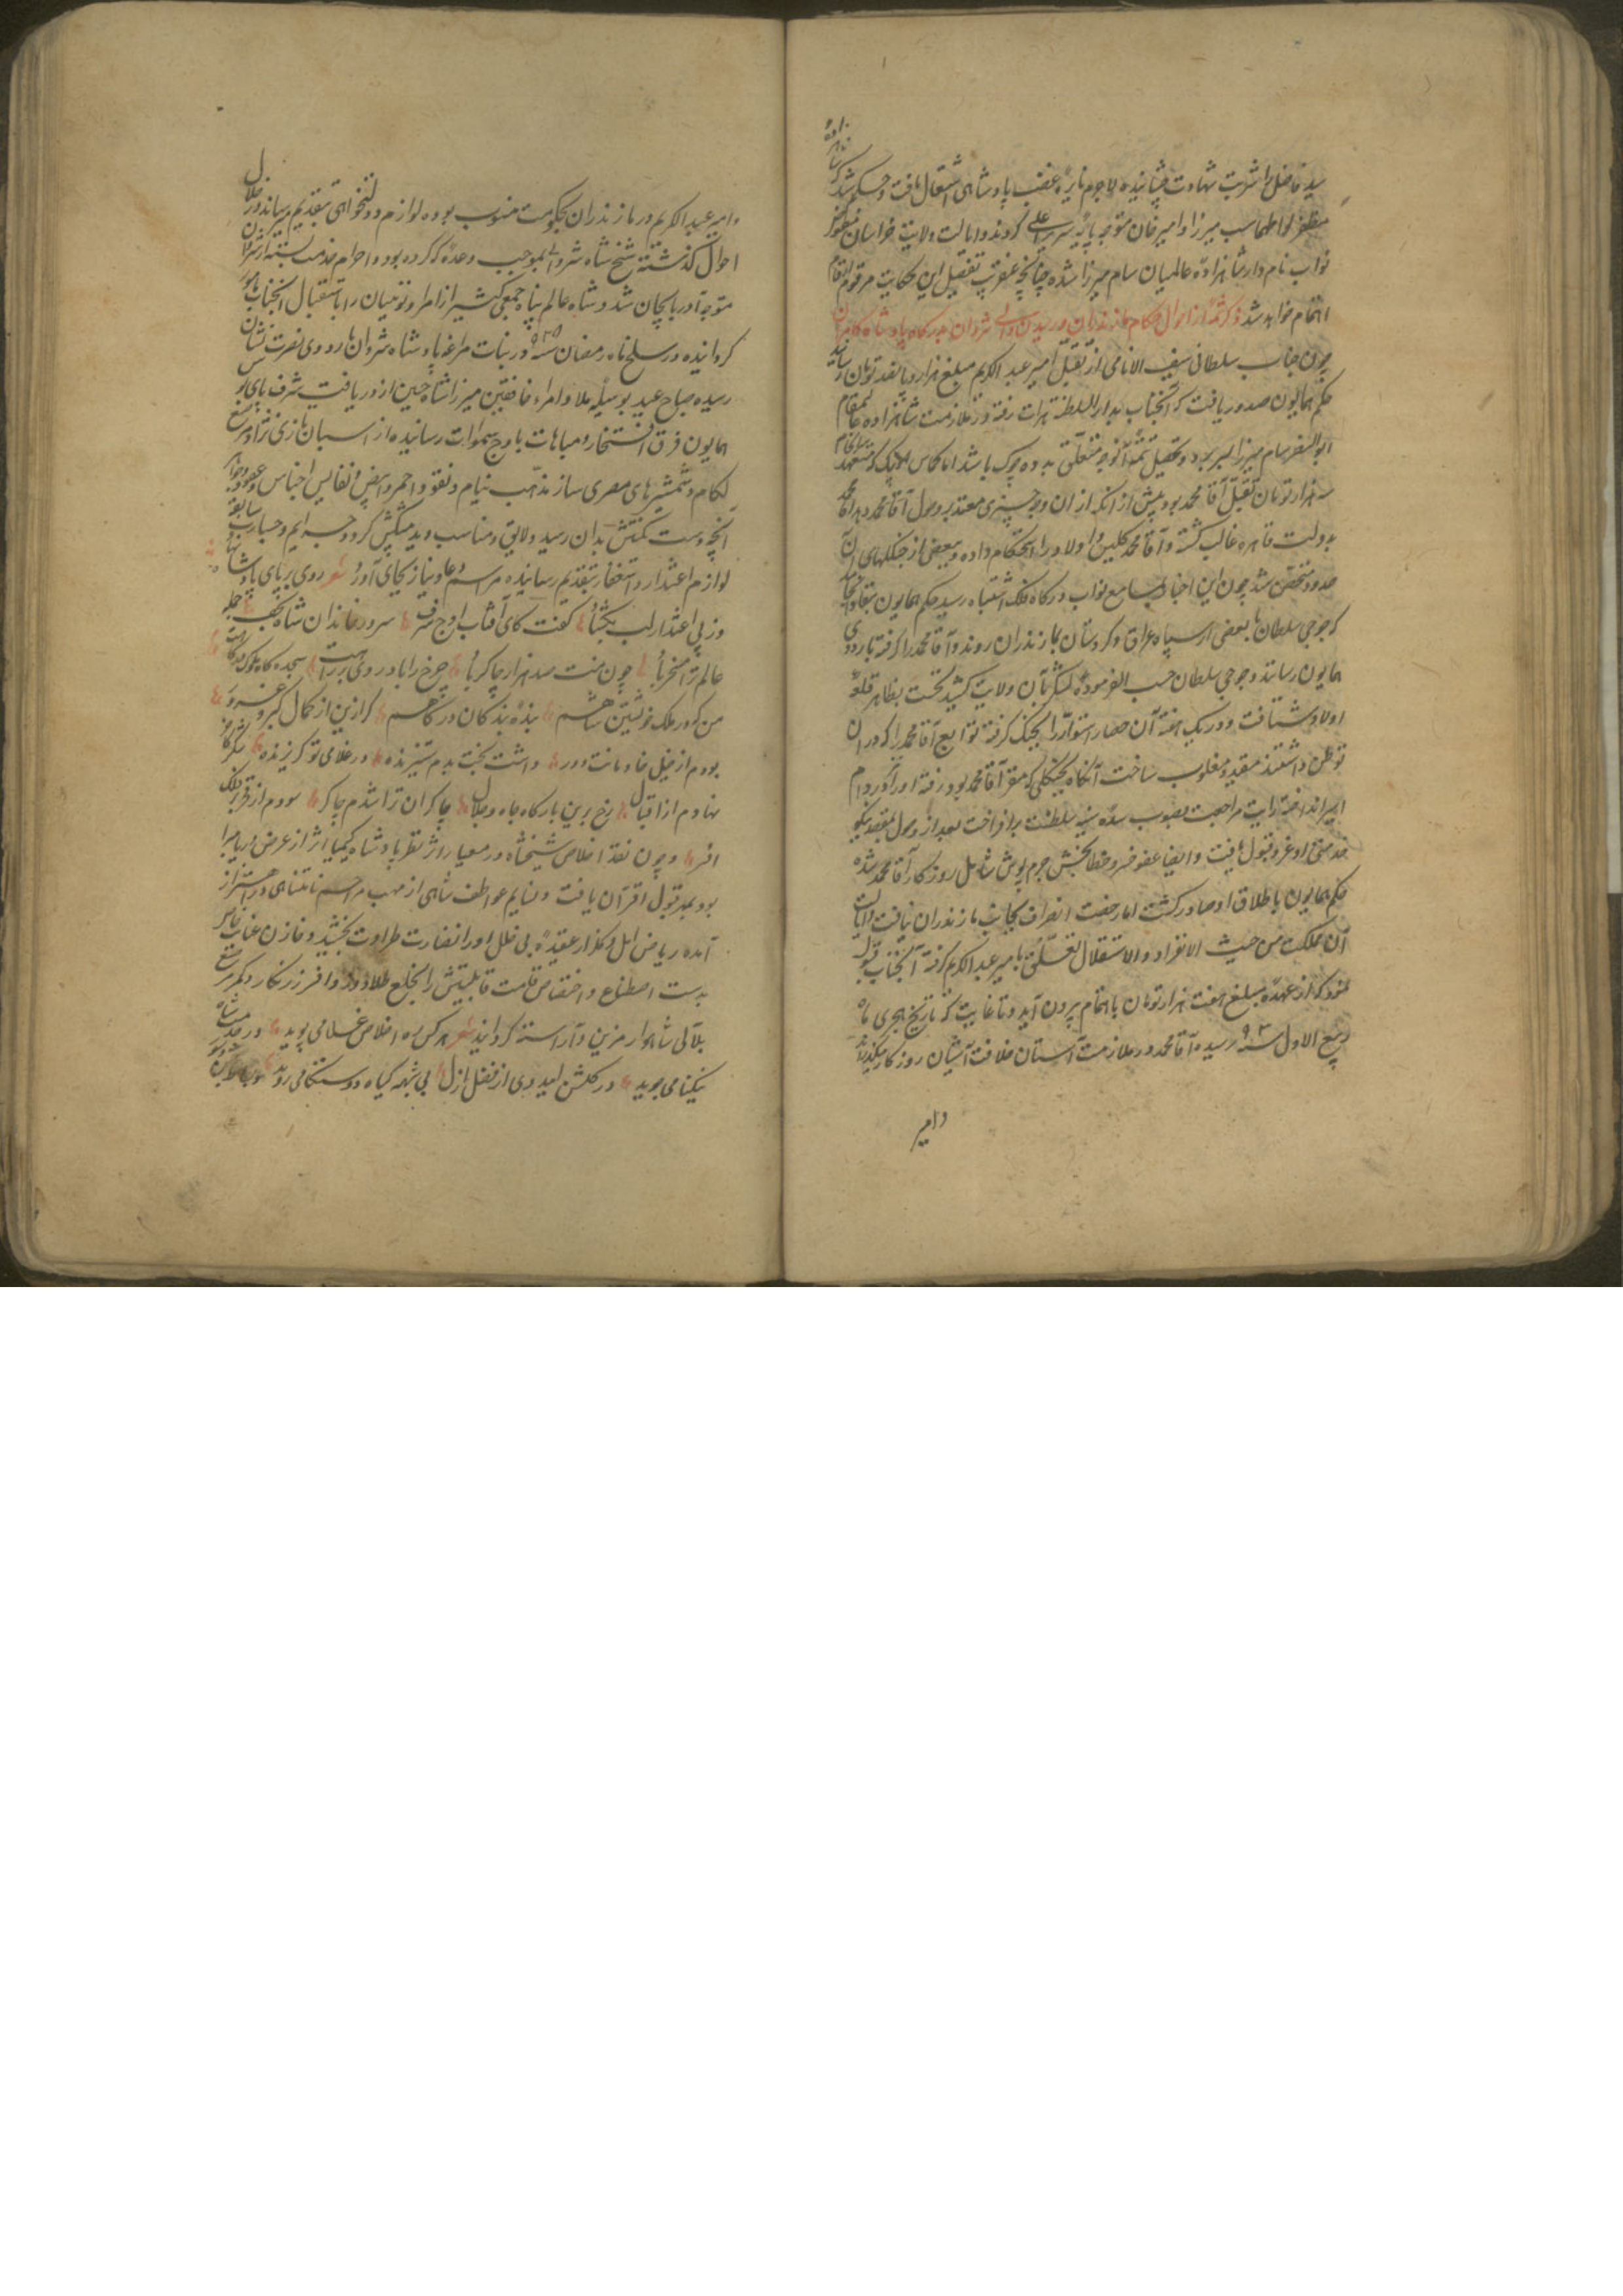 سید فاضل را شربت شهادت چشانیده لاجرم نایره غضب پادشاهی اشتعال یافت و حکم شد که شاهزاده
مظفر لوا طهماسب میرزا و امیر خان متوجه پایه سریر اعلی گردند و ایالت ولایت خراسان
نواب نامدار شاهزاده عالمیان سام میرزا شده چنانچه عنقریب تفصیل این حکایت مرقوم اقلام
اهتمام خواهد شد ذکر شمه از احوال حکام مازندران و رسیدن والی شروان بدرگاه پادشاه کامران
چون جناب سلطانی سیف الانامی از تقبل امیر عبد الکریم مبلغ هزار و پانصد تومان رسانید
حکم همایون صدور یافت که آنجناب بدار السلطنه هرات رفته در ملازمت شاهزاده عالیمقام
ابو النصر سام میرزا بسر برد و تحصیل تتمه آنوجه متعلق به دوه چوک باشد اما
سه هزار تومان تقبل آقا محمد بود پیش از آنکه از ان وجه چیزی معتد به وصول آقا محمد
بدولت قاهره غالب گشته و آقا محمد کلیس و اولاد را استحکام داده و ببعضی از جنگلهای آن
حدود متحصن شد چون این اخبار بمسامع نواب درگاه فلک اشتباه رسید حکم همایون بنفاذ انجامید
که جوجی سلطان با بعضی از سپاه عراق و کردستان بمازندران روند و آقا محمد را گرفته باردوی
همایون رسانند و جوجی سلطان حسب الفرموده لشکر بآن ولایت کشید نخست بظاهر قلعه
اولاد شتافت و در یک هفته آن حصار استوار را بجنگ گرفته توابع آقا محمد را که در ان
توطن داشتند مقید و مغلوب ساخت آنگاه بجنگلی که مقر آقا محمد بود رفته او را در دام
اسیر انداخته رایت مراجعت بصوب سده سنیه سلطنت برافراخت بعد از وصول بمقصد نیکو
خدمتی او عز قبول یافت و ایضا عفو خسرو خطابخش جرم پوش شامل روزگار آقا محمد شده
حکم همایون باطلاق او صادر گشت اما رخصت انصراف بجانب مازندران نیافت و ایالت
آن مملکت من حیث الانفراد و الاستقلال تعلق بامیر عبد الکریم گرفته آنجناب قبول
نمود که از عهده مبلغ هفت هزار تومان باهتمام بیرون آید و تا غایت که تاریخ هجری بماه
ربیع الاول سنه ۹۳۰ رسیده آقا محمد در ملازمت آستان خلافت آشیان روزگار میگذراند
و امیر
و امیر عبد الکریم در مازندران بحکومت منسوب بوده لوازم دولتخواهی بتقدیم میرساند و در خلال
احوال گذشته شیخ شاه شروانی بموجب وعده که کرده بود احرام خدمت بسته از شروان
متوجه آذربایجان شد و شاه عالم پناه جمعی کثیر از امرا و نوئینان را باستقبال آنجناب مامور
گردانیده در سلخ ماه رمضان سنه در بنات مراغه پادشاه شروان باردوی نصرت نشان
رسیده صباح عید بوسیله علا و امراء خافقین میرزا شاه حسین از دریافت شرف پای بوس
همایون فرق افتخار و مباهات باوج سموات رسانیده از اسپان تازی نژاد مرصع
لکام و شمشیرهای مصری ساز مذهب نیام و نقود احمر و ابیض و نفایس اجناس
آنچه دست مکنتش بدان رسید و لایق و مناسب دید پیشکش کرد و جرایم و جسارت سابق
لوازم اعتذار و استغفار بتقدیم رسانیده مراسم دعا و نیاز بجای آورد شعر روی بر پای پادشا بنهاد
وز پی اعتذار لب بگشاد گفت کای آفتاب اوج شرف سرور خاندان شاه نجف جمله
عالم ترا مسخر باد چون منت صد هزار چاکر باد چرخ را باد روی بر راهت سجده گاه ملوک درگاهت
من که در ملک خویشتن شاهم بنده بندگان درگاهم گر ازین از کمال کبر و غرور
بودم از خیل خادمانت دور داشت بخت بدم ستیزنده در غلامی تو گریزنده شکر کانون
نهادم از اقبال رخ برین بارگاه جاه و جلال چاکران ترا شدم چاکر سودم از فخر بر فلک
افسر و چون نقد اخلاص شیخشاه در معیار اثر نظر پادشاه کیمیا اثر از عرض ریا مبرا
بود بمهر قبول اقتران یافت و نسایم عواطف شاهی از مهب مراحم نامتناهی در اهتزاز
آمده ریاض امل و گلزار عقیده بی خلل او را نضارت طراوت بخشید و خازن عنایت
بدست اصطناع و اختصاص قامت قابلیتش را بخلع طلادوز و افسر زرنگار و کمر مرصع
بلآلی شاهوار مزین و آراسته گردانید شعر هر کس ره اخلاص غلامی پوید در خدمت شاه
نیکنامی جوید در گلشن امید وی از فضل ازل بی شبهه گیاه دوستکامی روید